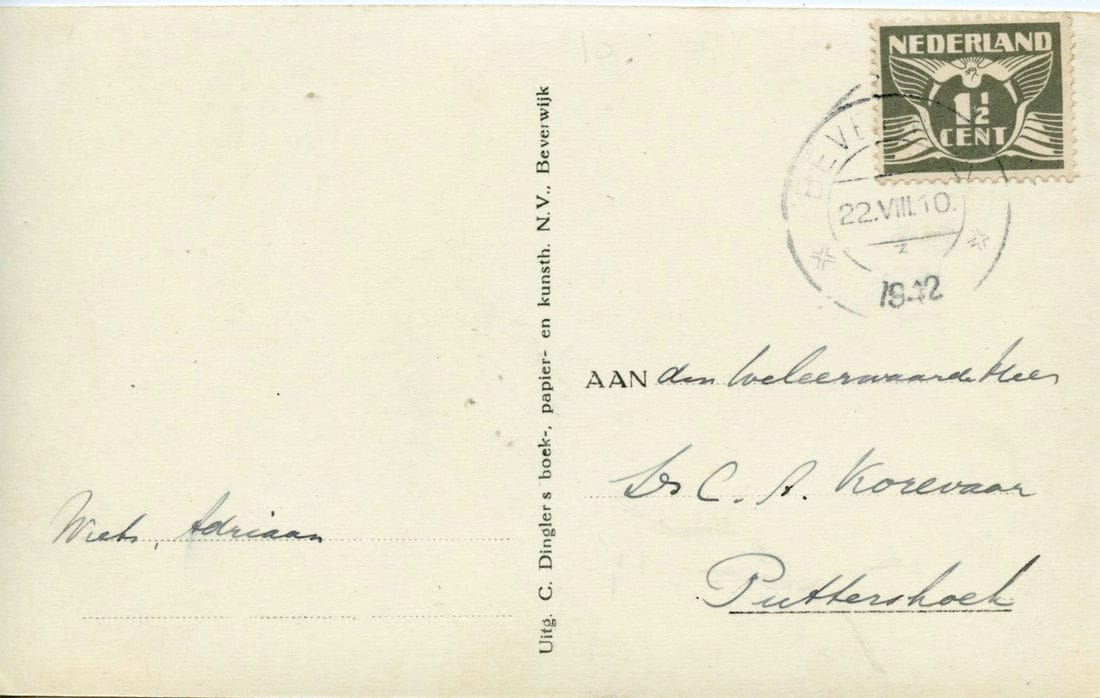 NEDERLAND
1½
CENT
22.VIII.10.
1942
Uitg. C. Dingler s boek-, papier- en kunsth. N.V., Beverwijk
AAN den Weleerwaarde Heer
Ds C. A. Korevaar
Puttershoek
Wiebs, Adriaan